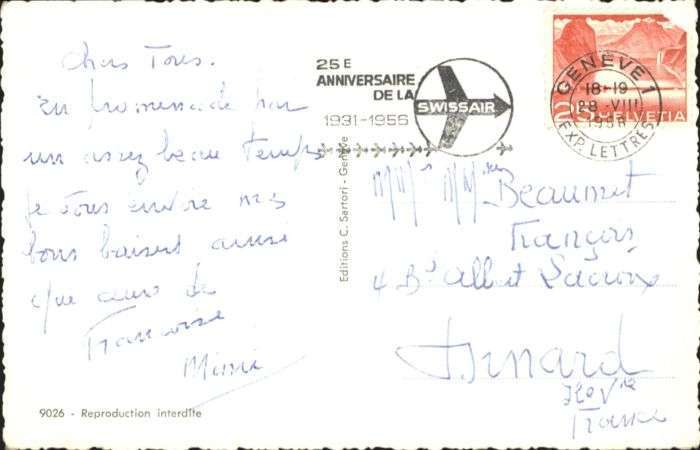 Chers Tous.
En promenade par
un assez beau temps
je vous envoie mes
bons baisers ainsi
que ceux de
Francoise
Mimi
9026 - Reproduction interdite
Editions C. Sartori - Genève
25E
ANNIVERSAIRE
DE LA
1931-1956
SWISSAIR
GENÈVE 1
18-19
28-VIII
1956
EXP. LETTRES
HELVETIA
Beaumet
François
4 Bd Albert Lacroix
Dinard
Ile V ne
France